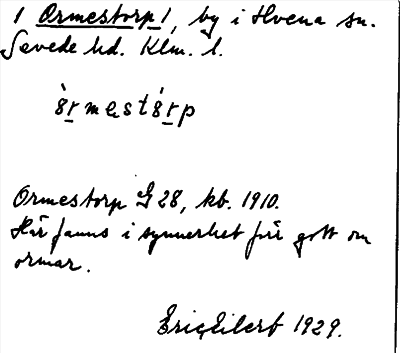 1 Ormestorp 1, by i Hvena sn.
Sevede hd. Klm. l.
Ormestorp G 28, kb. 1910.
Här fanns i synnerhet förr gott om
ormar.
Eric Eilert 1929.